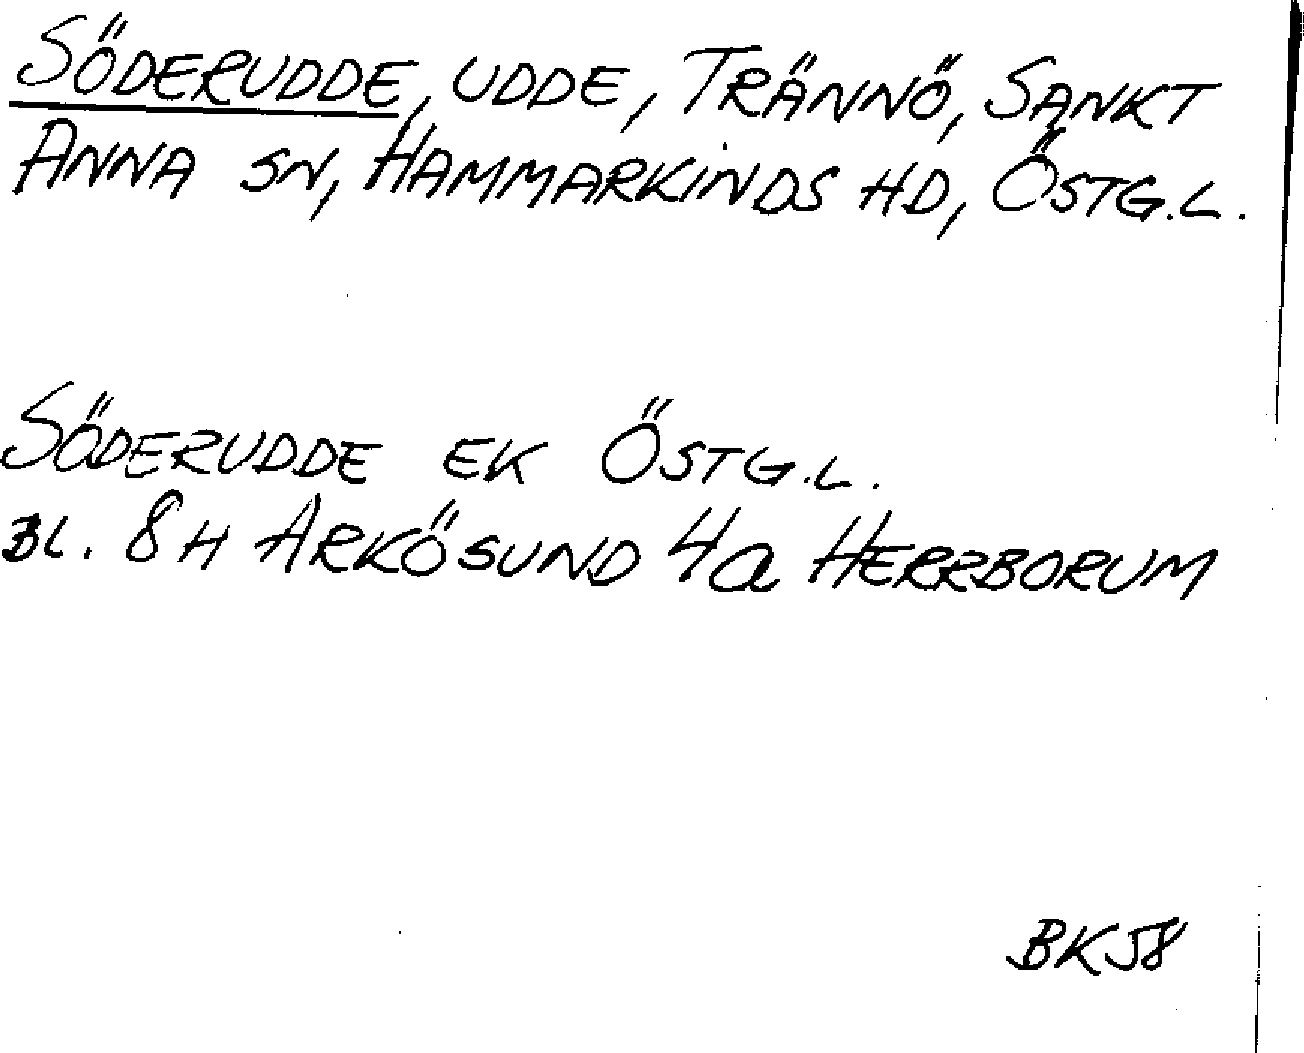 SÖDERUDDE, UDDE, TRÄNNÖ, SANKT
ANNA SN, HAMMARKINDS HD, ÖSTG.L.
SÖDERUDDE EK ÖSTG.L.
BL. 8H ARKÖSUND 4a HERRBORUM
BK58